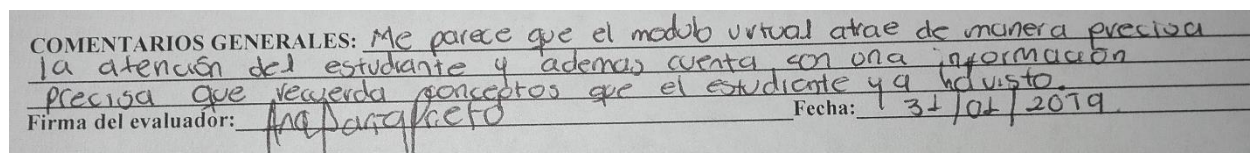 COMENTARIOS GENERALES: Me parece que el modulo virtual atrae de manera precisa
la atención del estudiante y ademas cuenta con una información
precisa que recuerda conceptos que el estudiante ya ha visto.
Firma del evaluador: Ana Parra Prieto Fecha: 31/01/2019